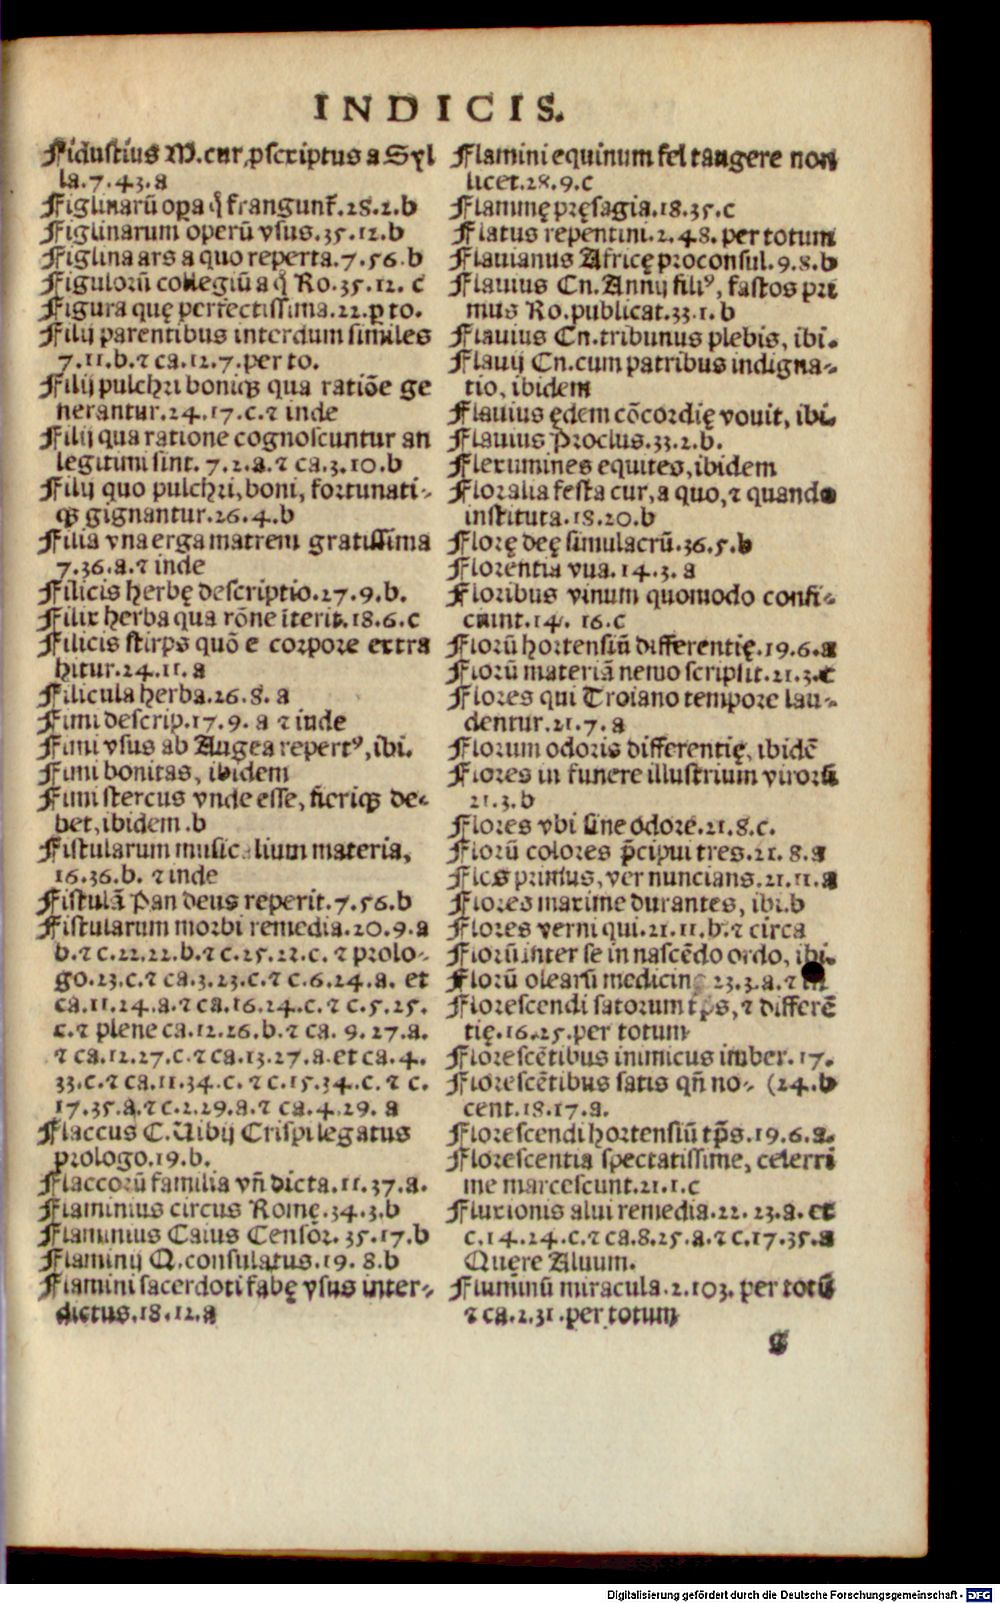 INDICIS.
Fidustius M. cur, ꝓscriptus a Syl
la.7.43.a
Figlinarū opa qͥ frangunt̄.28.2.b
Figlinarum operū vsus.35.12.b
Figlina ars a quo reperta.7.56.b
Figulorū collegiū a qͥ Ro.35.12. c
Figura quę perfectissima.22.p to.
Filij parentibus interdum similes
7.11.b.⁊ ca.12.7.per to.
Filij pulchri boniqꝫ qua ratiōe ge
nerantur.24.17.c.⁊ inde
Filij qua ratione cognoscuntur an
legitimi sint. 7.2.a.⁊ ca.3.10.b
Filij quo pulchri, boni, fortunati-
qꝫ gignantur.26.4.b
Filia vna erga matrem gratissima
7.36.a.⁊ inde
Filicis herbę descriptio.27.9.b.
Filix herba qua rōne īterit.18.6.c
Filicis stirps quō e corpore extra
hitur.24.11.a
Filicula herba.26.8. a
Fimi descrip.17.9. a ⁊ inde
Fimi vsus ab Augea repertꝰ, ibi.
Fimi bonitas, ibidem
Fimi stercus vnde esse, fieriqꝫ de-
bet, ibidem.b
Fistularum musicalium materia,
16.36.b. ⁊ inde
Fistulā Pan deus reperit.7.56.b
Fistularum morbi remedia.20.9.a
b.⁊ c.22.22.b.⁊ c.25.22.c. ⁊ prolo-
go.23.c.⁊ ca.3.23.c.⁊ c.6.24.a. et
ca.11.24.a.⁊ ca.16.24.c.⁊ c.5.25.
c.⁊ plene ca.12.26.b.⁊ ca. 9.27.a.
⁊ ca.12.27.c.⁊ ca.13.27.a.et ca.4.
33.c.⁊ ca.11.34.c.⁊ c.15.34.c. ⁊ c.
17.35.a.⁊ c.2.29.a.⁊ ca.4.29. a
Flaccus C.Uibij Crispi legatus
prologo.19.b.
Flaccorū familia vn̄ dicta.11.37.a.
Flaminius circus Romę.34.3.b
Flaminius Caius Censor.35.17.b
Flaminij Q.consulatus.19.8.b
Flamini sacerdoti fabę vsus inter-
dictus.18.12.a
Flamini equinum fel tangere non
licet.28.9.c
Flammę pręsagia.18.35.c
Flatus repentini.2.48.per totum
Flauianus Africę proconsul.9.8.b
Flauius Cn.Annij filiꝰ, fastos pri
mus Ro.publicat.33.1.b
Flauius Cn.tribunus plebis, ibi.
Flauij Cn.cum patribus indigna-
tio, ibidem
Flauius ędem cōcordię vouit, ibi.
Flauius Proclus.33.2.b.
Flexumines equites, ibidem
Floralia festa cur, a quo, ⁊ quando
instituta.18.20.b
Florę deę simulacrū.36.5.b
Florentia vua.14.3. a
Floribus vinum quomodo confi-
ciunt.14. 16.c
Florū hortensiū differentię.19.6.a
Florū materiā nemo scripsit.21.3.c
Flores qui Troiano tempore lau-
dentur.21.7.a
Florum odoris differentię, ibidē
Flores in funere illustrium virorū
21.3.b
Flores vbi sine odore.21.8.c.
Florū colores p̄cipui tres.21.8.a
Flos primus, ver nuncians.21.11.a
Flores maxime durantes, ibi.b
Flores verni qui.21.11.b.⁊ circa
Florū inter se in nascēdo ordo, ibi.
Florū olearū medicinę 23.3.a.⁊ in
Florescendi satorum tp̄s, ⁊ differē
tię.16.25.per totum
Florescētibus inimicus imber.17.
Florescētibus satis qn̄ no- (24.b
cent.18.17.a.
Florescendi hortensiū tp̄s.19.6.a.
Florescentia spectatissime, celerri
me marcescunt.21.1.c
Fluxionis alui remedia.22. 23.a. et
c.14.24.c.⁊ ca.8.25.a.⁊ c.17.35.a
Quere Aluum.
Fluminū miracula.2.103. per totū
⁊ ca.2.31.per totum
Digitalisierung gefördert durch die Deutsche Forschungsgemeinschaft - DFG